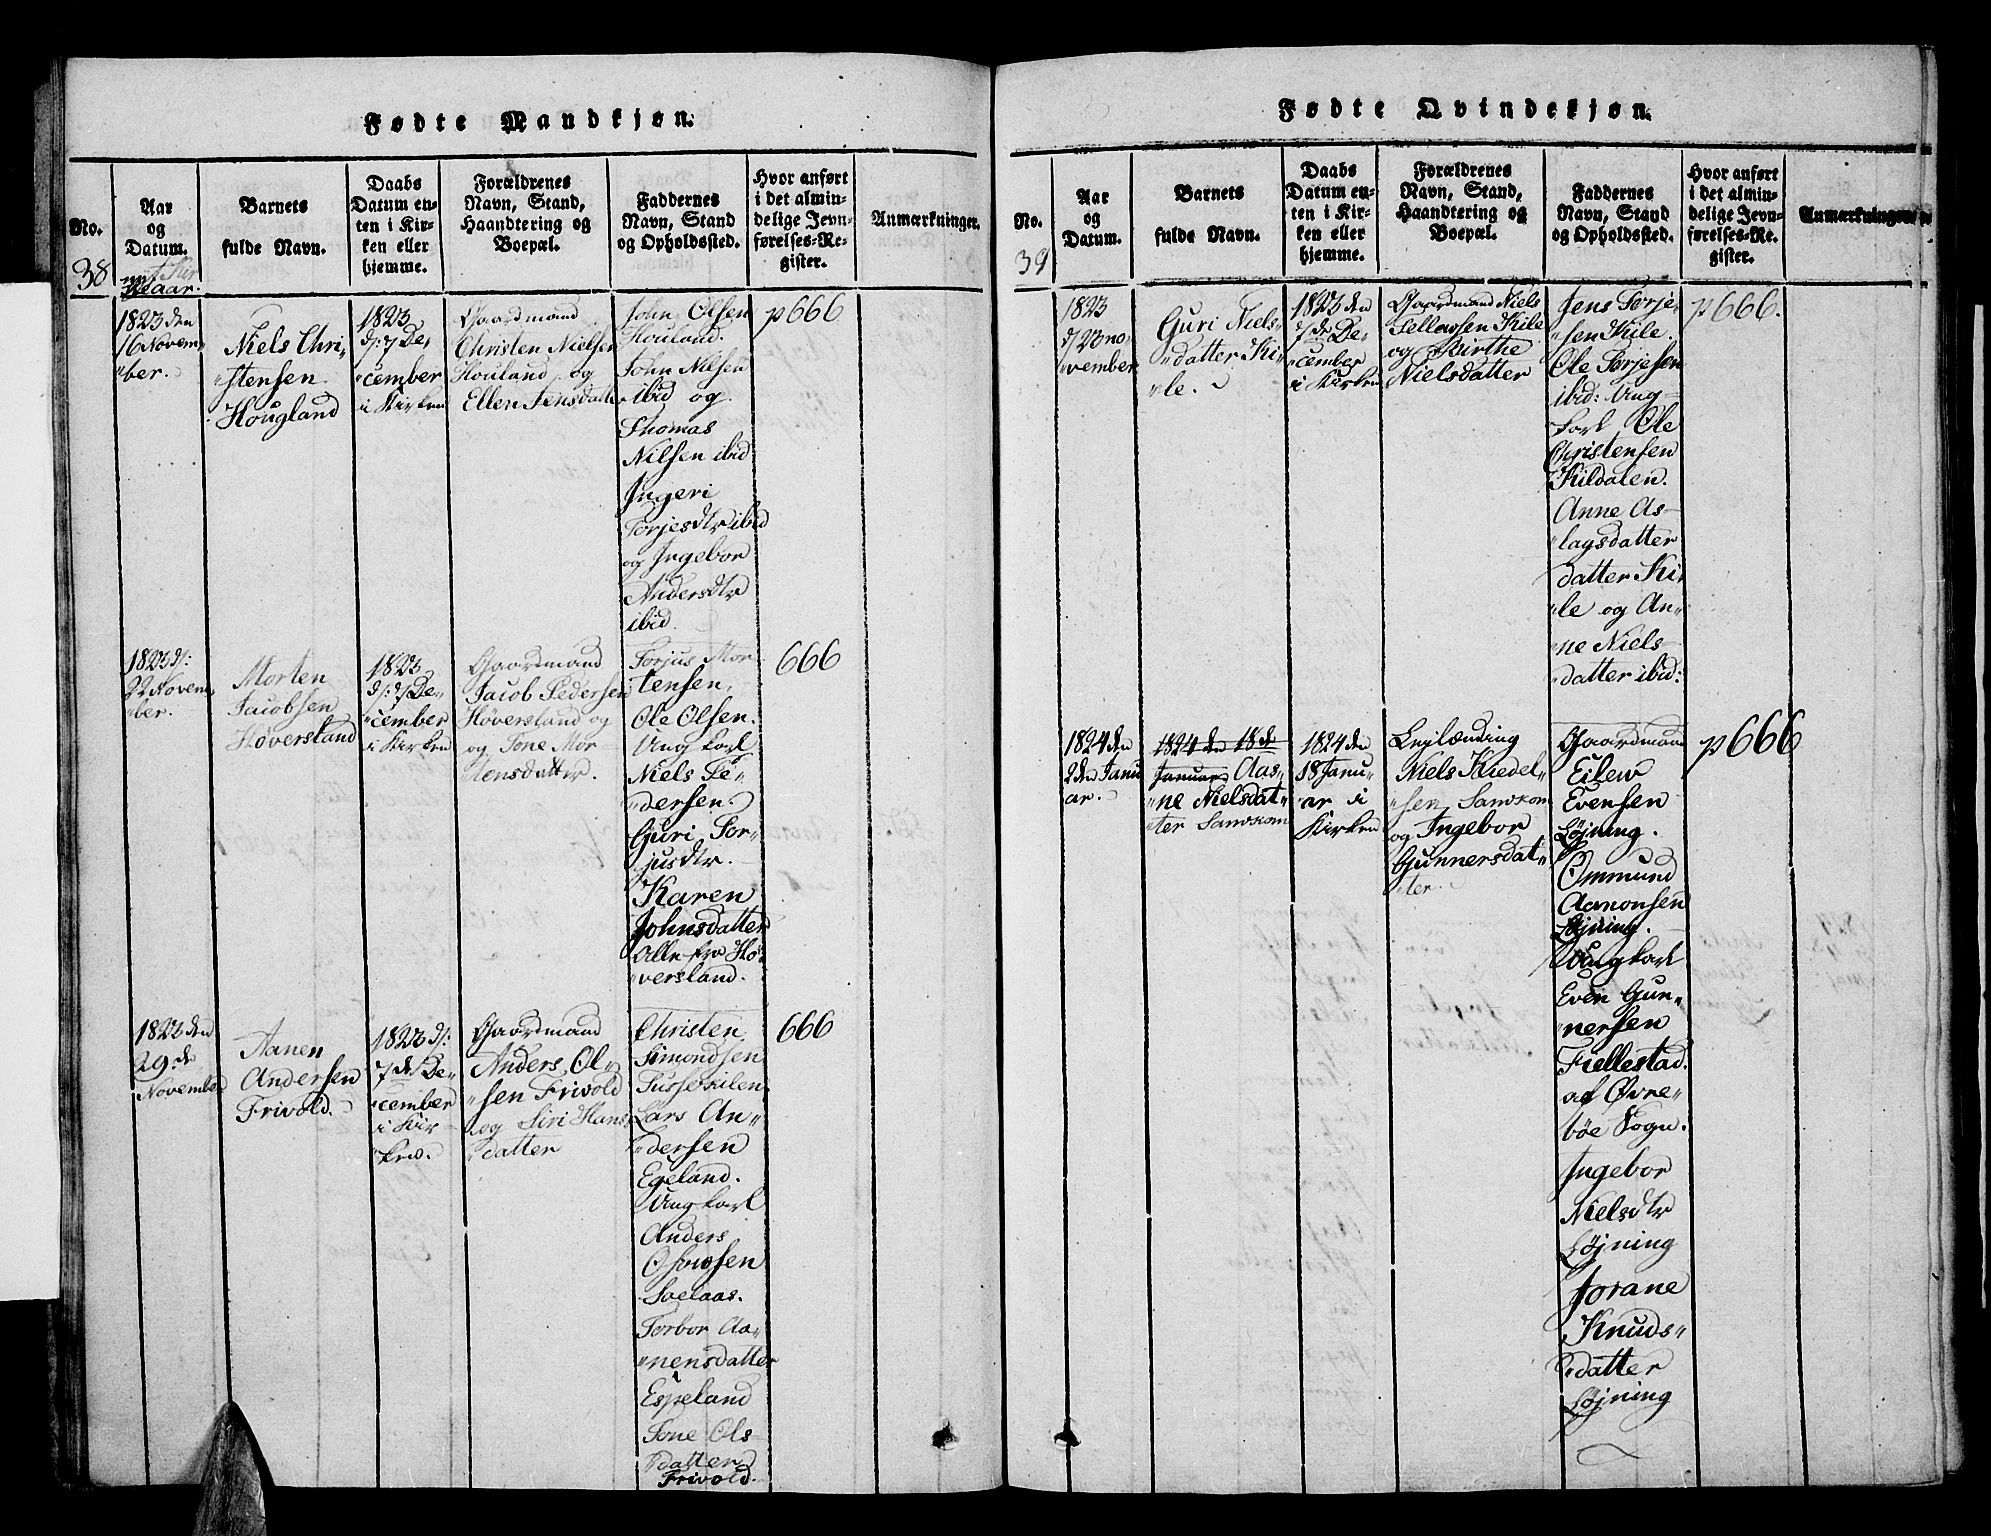 Fødte Mandkjøn.
No.
Aar
og
Datum.
Barnets
fulde Navn.
Daabs
Datum en-
ten i Kir-
ken eller
hjemme.
Forældrenes
Navn, Stand,
Haandtering og
Boepæl.
Faddernes
Navn, Stand
og Opholdssted.
Hvor anført
i det almin-
delige Jevn-
førelses-Re-
gister.
Anmærkninger.
38
nyt Kir
keaar.
1823 den
16 Novem„
„ber.
Niels Chri„
„stensen
Hougland
1823
d: 7 De„
„cember
i Kirken
Gaardmand
Christen Nielsen
Houland og
Ellen Jensdatter
John Olsen
Houland.
John Nilsen
ibid og
Thomas
Nilsen ibid
Ingeri
Torjesdtr ibid
og Ingebor
Andersdtr
ibid.
p 666
1823 d:
22 Novem„
„ber.
Morten
Jacobsen
Høversland
1823
d: 7 De„
„cember
i Kirken
Gaardmand
Jacob Pedersen
Høversland og
og Tone Mor„
„tensdatter.
Torjus Mor
tensen,
Ole Olsen.
Ungkarl
Niels Pe„
„dersen.
Guri Tor„
„jusdtr.
Karen
Johnsdatter
Alle fra Hø„
„versland.
666
1823 den
29. de
November
Aanen
Andersen
Frivold.
1823 d:
7 de De„
„cember
i Kir
ken.
Gaardmand
Anders Ol„
„sen Frivold
og Siri Hans
„datter
Christen
Simondsen
Tussekilen
Lars An„
„dersen
Egeland.
Ungkarl
Anders
Soelaas.
Torbor Aa„
„nensdatter
Espeland
Tone Ols
„datter
Frivold.
666
Fødte Qvindekjøn.
No.
Aar
og
Datum.
Barnets
fulde Navn.
Daabs
Datum en-
ten i Kir-
ken eller
hjemme.
Forældrenes
Navn, Stand,
Haandtering og
Boepæl.
Faddernes
Navn, Stand
og Opholdssted.
Hvor anført
i det almin-
delige Jevn-
førelses-Re-
gister.
Anmærkninger.
39
1823
d/23 no„
„vember
Guri Niels„
„datter Ki„
„le.
1823 den
7 de De„
„cember
i Kirken
Gaardmand Niels
Tellevsen Kile
og Birthe
Nielsdatter
Jens Torje„
„sen Kile.
Ole Torjesen
ibid: Ung„
karl Ole
Christensen
Kildalen.
Anne As„
„lagsdatter
datter Ki„
„le og An„
„ne Niels„
„datter ibid:
p 666.
1824 den
2den Janu
ar.
1824 den 18 de
Januar Aas„
„ne Nielsdat„
„ter Sandkom
1824 den
18 Janu„
„ar i
Kirken
Lejlænding
Niels Kiedel„
„sen Sandkom
og Ingebor
Gunnersdat„
„ter.
Gaardmand
Eilew
Evensen
Løjning.
Ommund
Aamonsen
Løjning.
Ungkarl
Even Gun„
„nersen
Fiellestad.
af Øvre„
bøe Sogn.
Ingebor
Nielsdtr
Løjning
Jorane
Knuds„
„datter
Løjning
p 666